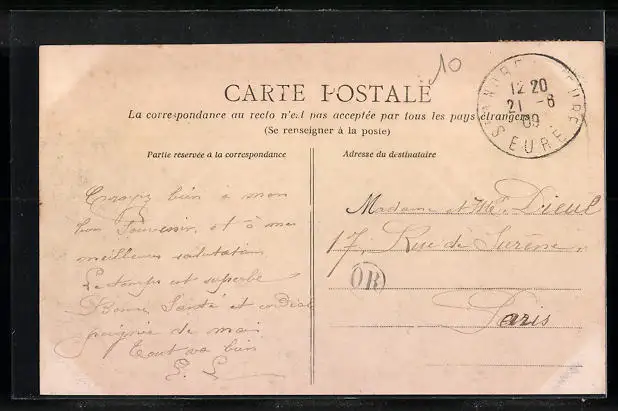 10
CARTE POSTALE
La correspondance au recto n'est pas acceptée par tous les pays étrangers
(Se renseigner à la poste)
12 20
21 - 6
09
EURE
Partie réservée à la correspondance
Adresse du destinataire
Croyez bien à mon
bon Souvenir, et à mes
meilleures salutations
Le temps est superbe
Bonne Santé et cordiale
poignée de main
Tout va bien
Madame et Mr. Dieul
17, Rue de Surène.
OR
Paris